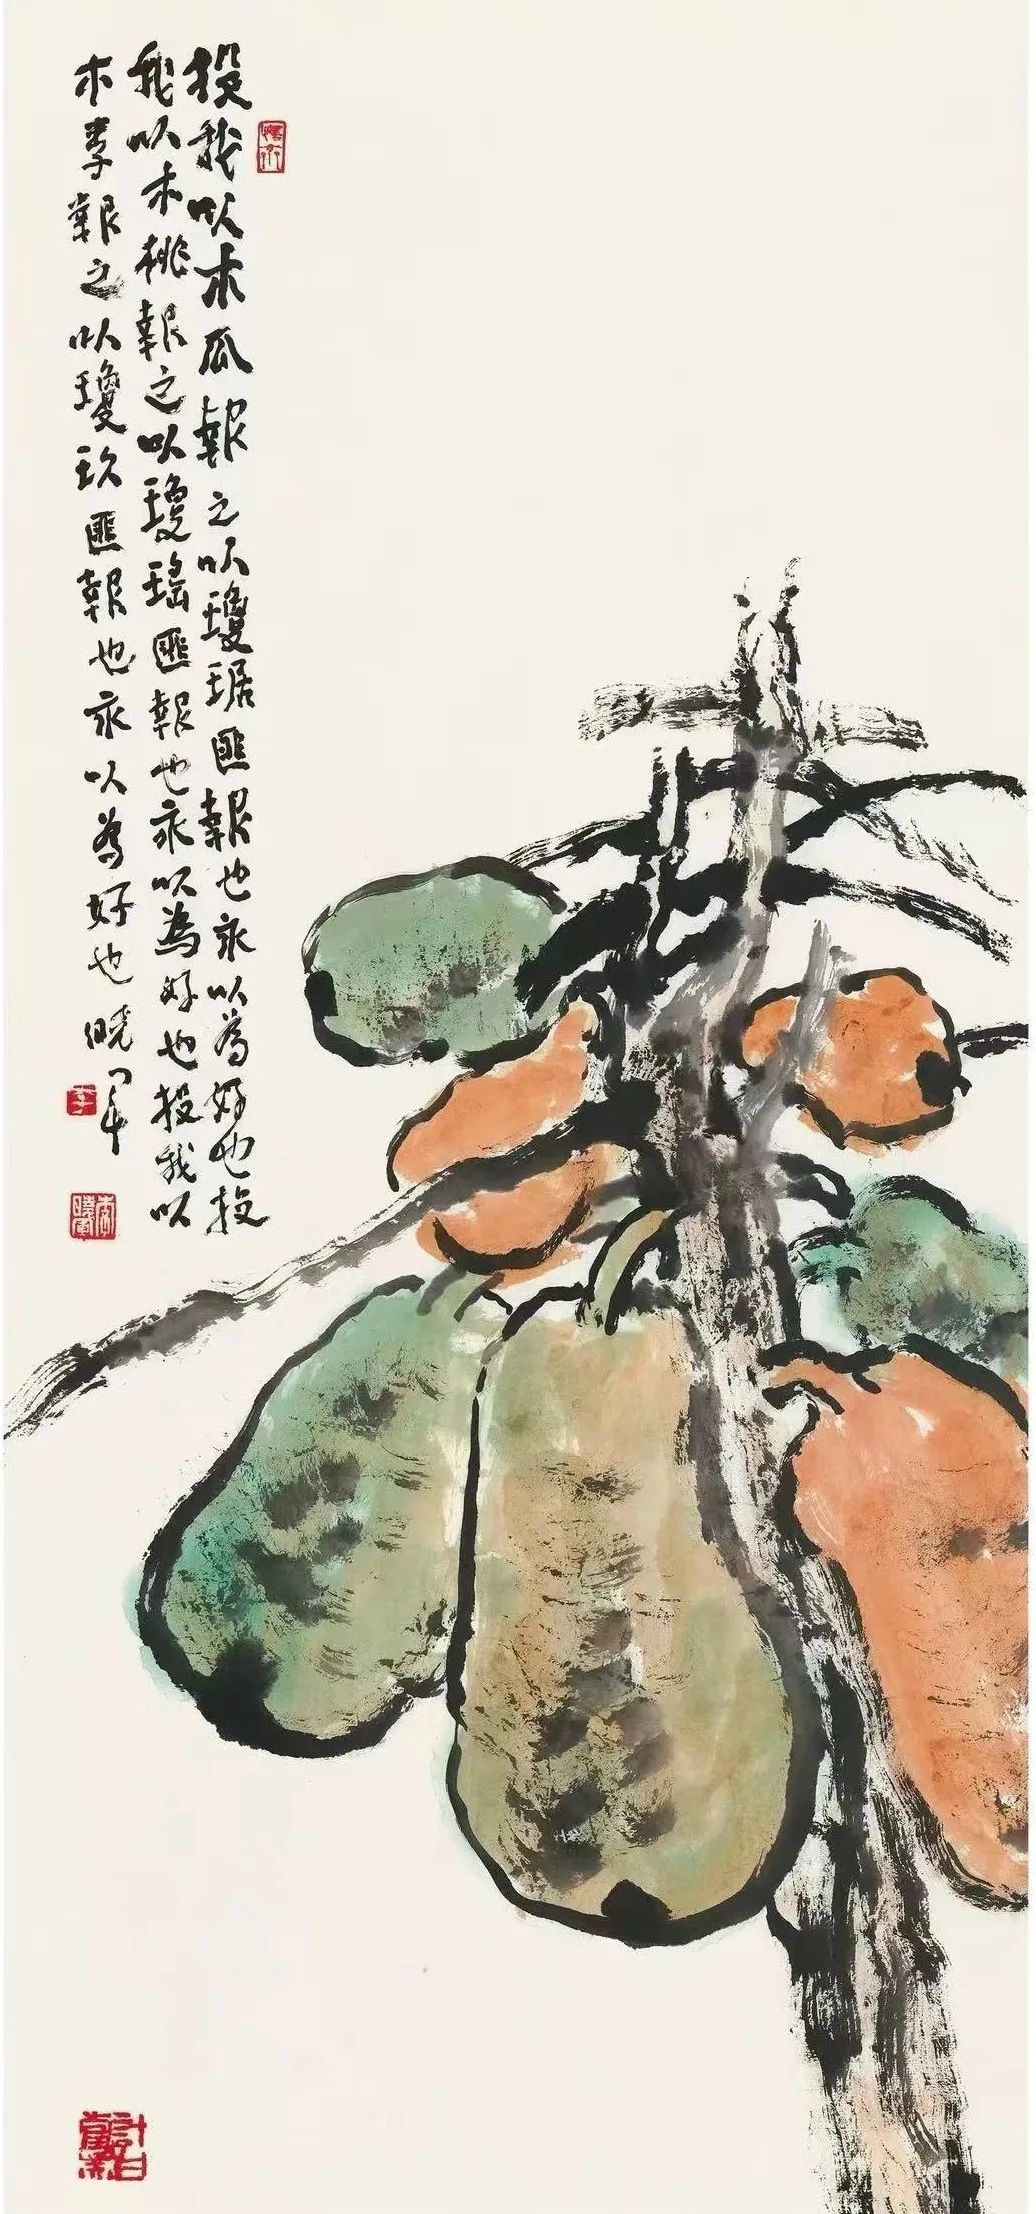 投我以木瓜報之以瓊琚匪報也永以為好也投
我以木桃報之以瓊瑤匪報也永以為好也投我以
木李報之以瓊玖匪報也永以為好也曉軍
李
李曉軍